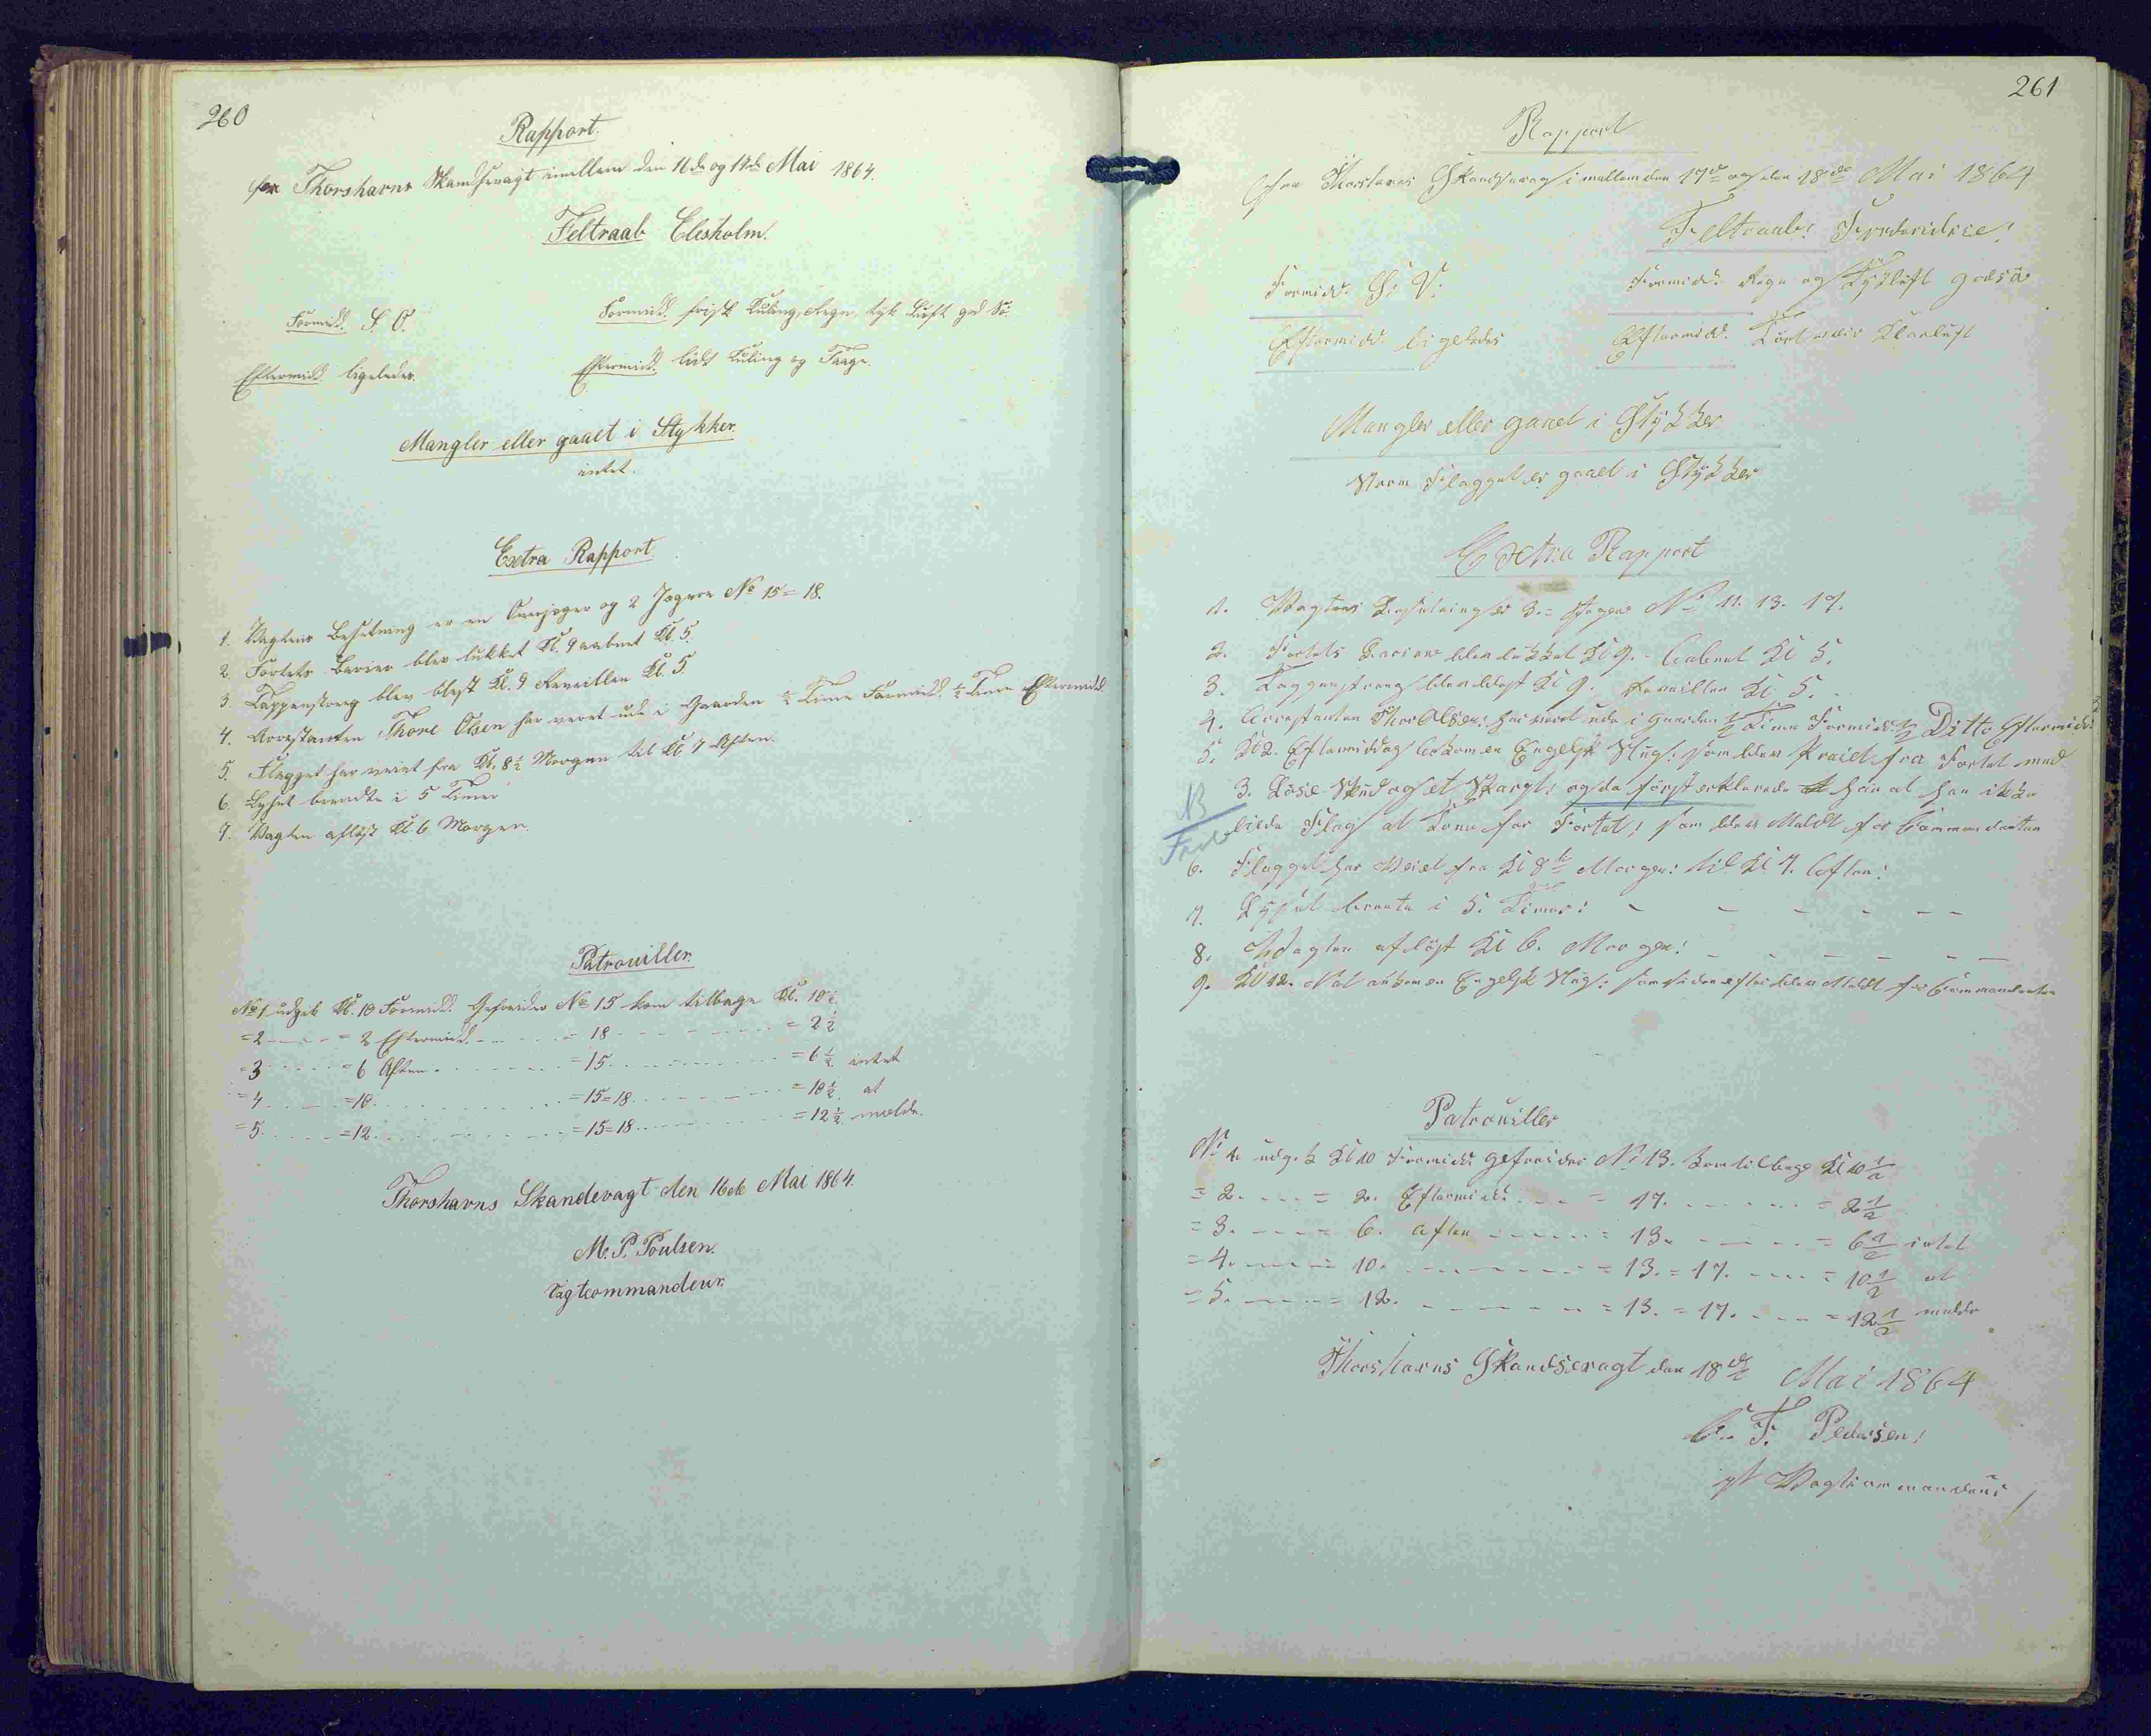 260
Rapport.
fra Thorshavns Skandsevagt imellem den 16de og 17de Mai 1864.
Feltraab Elisholm.
Formidd. S. O.
Formidd. frisk Kuling, Regn, tyk Luft god Sö.
Eftermidd. ligeledes.
Eftermidd. lidt Kuling og Taage.
Mangler eller gaaet i Stykker.
intet.
Extra Rapport.
1. Vagtens Besætning er en Overjæger og 2 Jægere No 15 = 18.
2. Fortets Barier blev lukket Kl. 9 aabnet Kl. 5.
3. Tappenstreg blev blæst Kl. 9 Reveillen Kl. 5.
4. Arrestanten Thore Olsen har været ude i Gaarden ½ Time Formidd. ½ Time Eftermidd.
5. Flagget har veiet fra Kl. 8½ Morgen til Kl. 7 Aften.
6. Lyset brændte i 5 Timer
7. Vagten aflöst Kl. 6 Morgen.
Patrouiller.
No 1 udgik Kl. 10 Formidd. Gefreider No 15 kom tilbage Kl. 10½.
= 2 - - - = 2 Eftermidd. - - - = 18 - - - = 2½
= 3 - - - = 6 Aften - - - = 15 - - - = 6½ intet
= 4 - - - = 10 - - - = 15 = 18 - - - = 10½ at
= 5 - - - = 12 - - - = 15 = 18 - - - = 12½ melde.
Thorshavns Skandsevagt den 16de Mai 1864.
M. P. Poulsen.
Vagtcommandeur.
261
Rapport
fra Thorshavns Skandsevagt imellem den 17de og den 18de Mai 1864
Feltraab:
Formidd. S: V:
Formidd. Regn og Tykluft god sö
Eftermidd. ligeledes
Eftermidd. Tört veir Klarluft
Mangler eller gaaet i Stykker
Storm Flagget er gaaet i Stykker
Extra Rapport
1. Vagtens Besætning er 3. = Jægere No 11. 13. 17.
2. Fortets Bariere blev lukket Kl 9. - Aabnet Kl 5.
3. Tappenstreng blev blæst Kl 9. Reveillen Kl 5.
4. Arrestanten Thor Olsen: har været ude i Gaarden ½ Time Formidd: ½ Ditto Eftermidd:
5. Kl 2. Eftermiddag ankom en Engelsk Slug: som blev Praiet fra Fortet med
3. Löse Skud og et Skarpt: og da först erklærede han at han ikke
vilde Flag at Kone for Fortet: som blev Meldt for Commandanten
NB
6. Flagget har Veiet fra Kl 8½ Morgen: til Kl 7. Aften:
7. Lyset brente i 5. Timer: - - - - - -
8. Vagten aflöst Kl 6. Morgen: - - - - - -
9. Kl 12. Nat ankom en Engelsk Slug: som siden efter blev Meldt for Commandanten
Patrouiller
No 1 udgik Kl 10 Formidd: gefreider No 13. kom tilbage Kl 10½
= 2. - - - = 2. Eftermidd: - - - = 17. - - - = 2½
= 3. - - - = 6. aften - - - = 13. - - - = 6½ intet
= 4. - - - = 10. - - - = 13. = 17. - - - = 10½ at
= 5. - - - = 12. - - - = 13. = 17. - - - = 12½ melde
Thorshavns Skandsevagt den 18de Mai 1864
C. F. Pedersen:
Vagtcommandeur